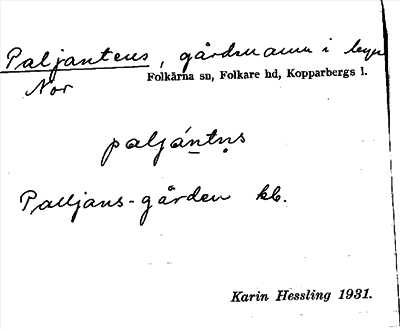 Paljantens, gårdsnamn i byn
Nor
Folkärna sn, Folkare hd, Kopparbergs l.
paljántṇs
Palljans-gården kb.
Karin Hessling 1931.